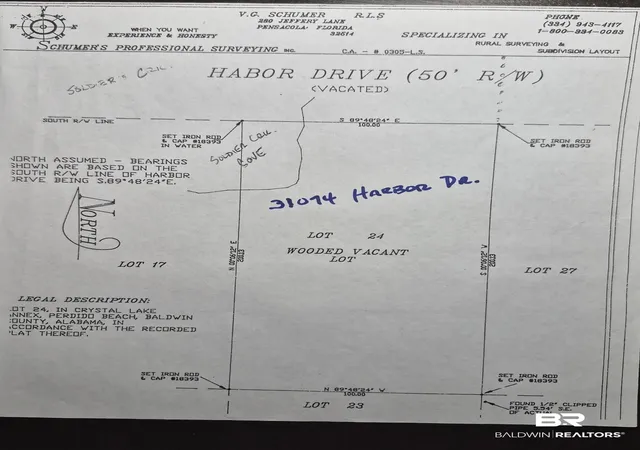 V.G. SCHUMER R.L.S
280 JEFFERY LANE
PENSACOLA, FLORIDA
32514
WHEN YOU WANT
EXPERIENCE & HONESTY
SPECIALIZING IN
PHONE
(334) 943-4117
1-800-334-0083
SCHUMER'S PROFESSIONAL SURVEYING INC.
C.A. - # 0303-L.S.
RURAL SURVEYING &
SUBDIVISION LAYOUT
HABOR DRIVE (50' R/W)
(VACATED)
SOUTH R/W LINE
S 89°48'24" E
100.00
SET IRON ROD
& CAP #18393
IN WATER
SET IRON ROD
& CAP #18393
SOLDIER
COVE
NORTH ASSUMED - BEARINGS
SHOWN ARE BASED ON THE
SOUTH R/W LINE OF HARBOR
DRIVE BEING S.89°48'24"E.
31074 HARBOR DR.
NORTH
LOT 24
WOODED VACANT
LOT
LOT 17
LOT 27
LEGAL DESCRIPTION:
LOT 24, IN CRYSTAL LAKE
ANNEX, PERDIDO BEACH, BALDWIN
COUNTY, ALABAMA, IN
ACCORDANCE WITH THE RECORDED
PLAT THEREOF.
SET IRON ROD
& CAP #18393
N 89°48'24" W
100.00
SET IRON ROD
& CAP #18393
LOT 23
FOUND 1/2" CLIPPED
PIPE 5.54' S.E.
OF ACTUAL
BR
BALDWIN REALTORS®